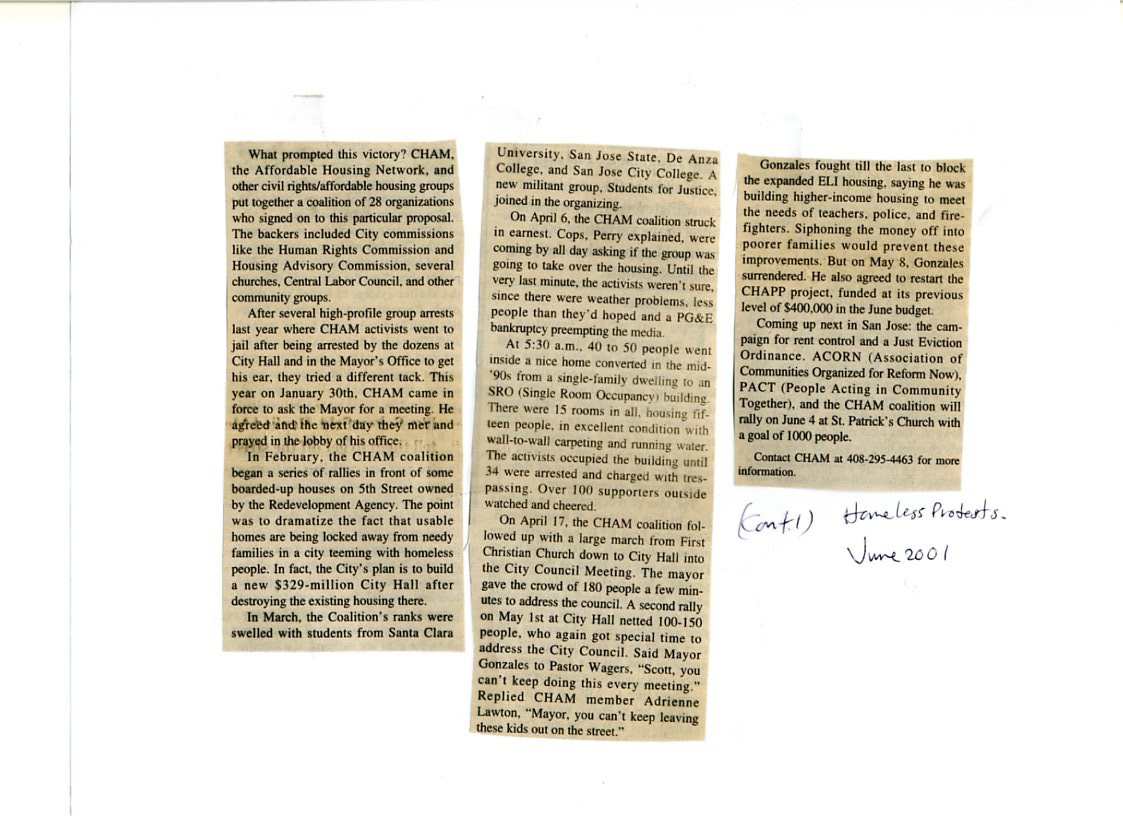 What prompted this victory? CHAM,
the Affordable Housing Network, and
other civil rights/affordable housing groups
put together a coalition of 28 organizations
who signed on to this particular proposal.
The backers included City commissions
like the Human Rights Commission and
Housing Advisory Commission, several
churches, Central Labor Council, and other
community groups.
After several high-profile group arrests
last year where CHAM activists went to
jail after being arrested by the dozens at
City Hall and in the Mayor's Office to get
his ear, they tried a different tack. This
year on January 30th, CHAM came in
force to ask the Mayor for a meeting. He
agreed and the next day they met and
prayed in the lobby of his office.
In February, the CHAM coalition
began a series of rallies in front of some
boarded-up houses on 5th Street owned
by the Redevelopment Agency. The point
was to dramatize the fact that usable
homes are being locked away from needy
families in a city teeming with homeless
people. In fact, the City's plan is to build
a new $329-million City Hall after
destroying the existing housing there.
In March, the Coalition's ranks were
swelled with students from Santa Clara
University, San Jose State, De Anza
College, and San Jose City College. A
new militant group, Students for Justice,
joined in the organizing.
On April 6, the CHAM coalition struck
in earnest. Cops, Perry explained, were
coming by all day asking if the group was
going to take over the housing. Until the
very last minute, the activists weren't sure,
since there were weather problems, less
people than they'd hoped and a PG&E
bankruptcy preempting the media.
At 5:30 a.m., 40 to 50 people went
inside a nice home converted in the mid-
'90s from a single-family dwelling to an
SRO (Single Room Occupancy) building.
There were 15 rooms in all, housing fif-
teen people, in excellent condition with
wall-to-wall carpeting and running water.
The activists occupied the building until
34 were arrested and charged with tres-
passing. Over 100 supporters outside
watched and cheered.
On April 17, the CHAM coalition fol-
lowed up with a large march from First
Christian Church down to City Hall into
the City Council Meeting. The mayor
gave the crowd of 180 people a few min-
utes to address the council. A second rally
on May 1st at City Hall netted 100-150
people, who again got special time to
address the City Council. Said Mayor
Gonzales to Pastor Wagers, "Scott, you
can't keep doing this every meeting."
Replied CHAM member Adrienne
Lawton, "Mayor, you can't keep leaving
these kids out on the street."
Gonzales fought till the last to block
the expanded ELI housing, saying he was
building higher-income housing to meet
the needs of teachers, police, and fire-
fighters. Siphoning the money off into
poorer families would prevent these
improvements. But on May 8, Gonzales
surrendered. He also agreed to restart the
CHAPP project, funded at its previous
level of $400,000 in the June budget.
Coming up next in San Jose: the cam-
paign for rent control and a Just Eviction
Ordinance. ACORN (Association of
Communities Organized for Reform Now),
PACT (People Acting in Community
Together), and the CHAM coalition will
rally on June 4 at St. Patrick's Church with
a goal of 1000 people.
Contact CHAM at 408-295-4463 for more
information.
(Cont.1) Homeless Protests.
June 2001